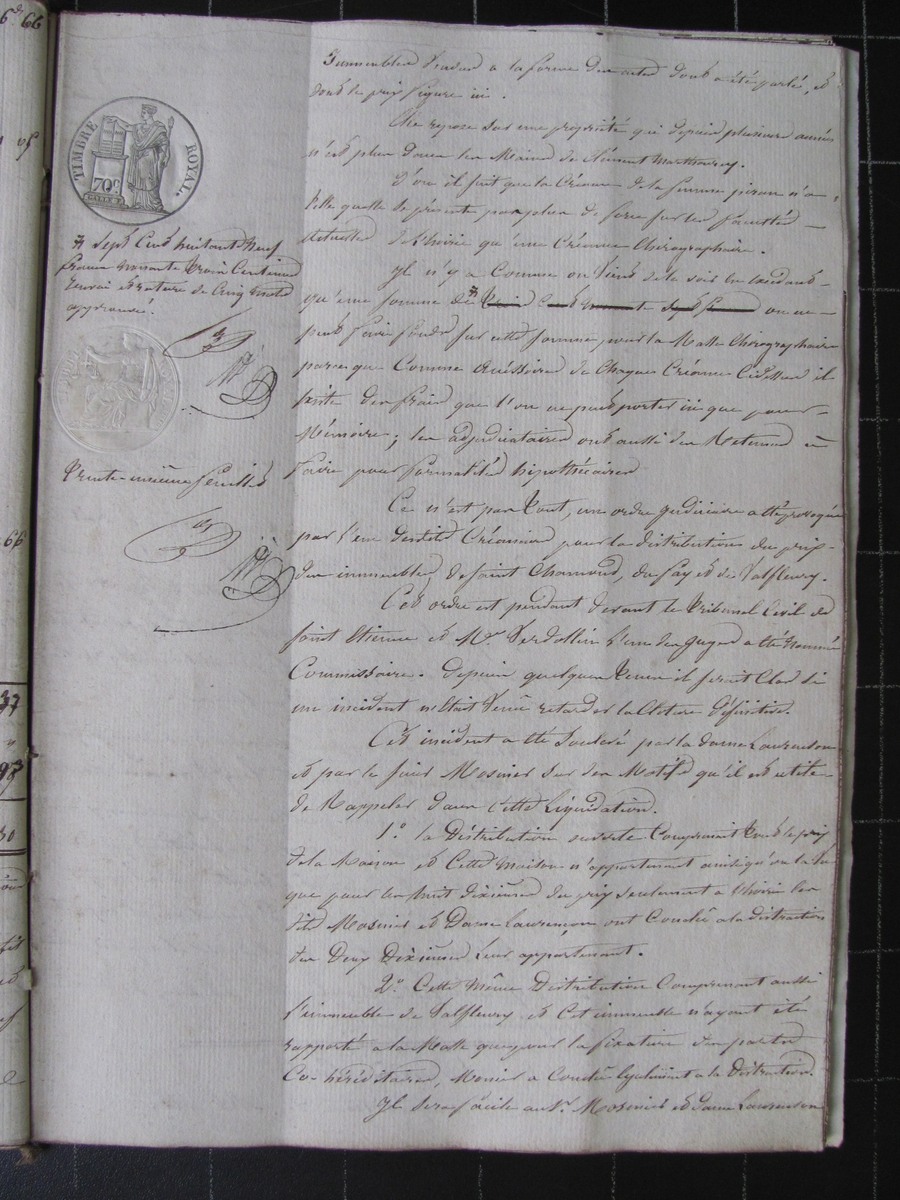 66
TIMBRE ROYAL.
70c
Sept Cent huitant Neuf
francs noixante Trois Centimes
renvoi et rature de Cinq mots
approuvé.
trente-unième feuillet
Immeubles vendus a la forme des actes dont a été parlé, et
dont le prix figure ici.
Elle repose sur une propriété qui depuis plusieurs années
n'est plus dans les Mains de Clément
D'ou il suit que la Créance de la femme n'a
telle quelle se présente pas plus de force sur les facultés
actuelles de l'hoirie qu'une Créance Chirographaire.
Yl n'y a Comme on Vient de le voir
qu'une somme de ou ne
peut faire fonds sur cette somme, pour la Masse Chirographaire
parceque Comme accessoire de Chaque Créance Cidessus il
existe des frais que l'on ne peut porter ici que pour
Mémoire; les adjudicataires ont aussi des Retenues à
faire pour formalités hipothécaires
Ce n'est pas tout, un ordre judiciaire a été provoqué
par l'un desdits Créanciers pour la distribution du prix
des immeubles de Saint Chamond, du fay et de Valfleury.
Cet ordre est pendant devant le Tribunal Civil de
saint Etienne et Mr. l'un des Juges a été nommé
Commissaire. depuis quelque tems il serait Clos si
un incident n'était venu retarder la Cloture définitive.
Cet incident a été soulevé par la dame Laurenson
et par le sieur Mosnier sur des Motifs qu'il est utile
de Rappeler dans Cette Liquidation.
1.° la Distribution ouverte Comprenait tout le prix
de la Maison et Cette Maison n'appartenant ainsi qu'on l'a vu
que pour les huit dixièmes du prix seulement a l'hoirie les
dits Mosnier et Dame Laurenson ont Conclu a la distraction
des Deux Dixièmes leur appartenant.
2.° Cette Même Distribution Comprenant aussi
l'immeuble de Valfleury et Cet immeuble n'ayant été
rapporté a la Masse que pour la fixation des parts
Co-héréditaires, Mosnier a Conclu également a la Distraction.
Yl sera facile au Sr. Mosnier et dame Laurenson